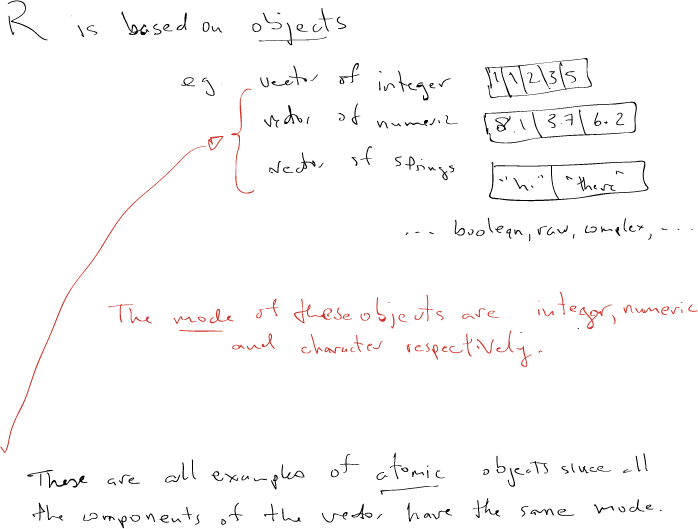 R is based on objects
eg vector of integer 1 1 2 3 5
vector of numeric 8.1 3.7 6.2
vector of strings "hi" "there"
... boolean, raw, complex, ...
The mode of these objects are integer, numeric
and character respectively.
These are all examples of atomic objects since all
the components of the vector have the same mode.